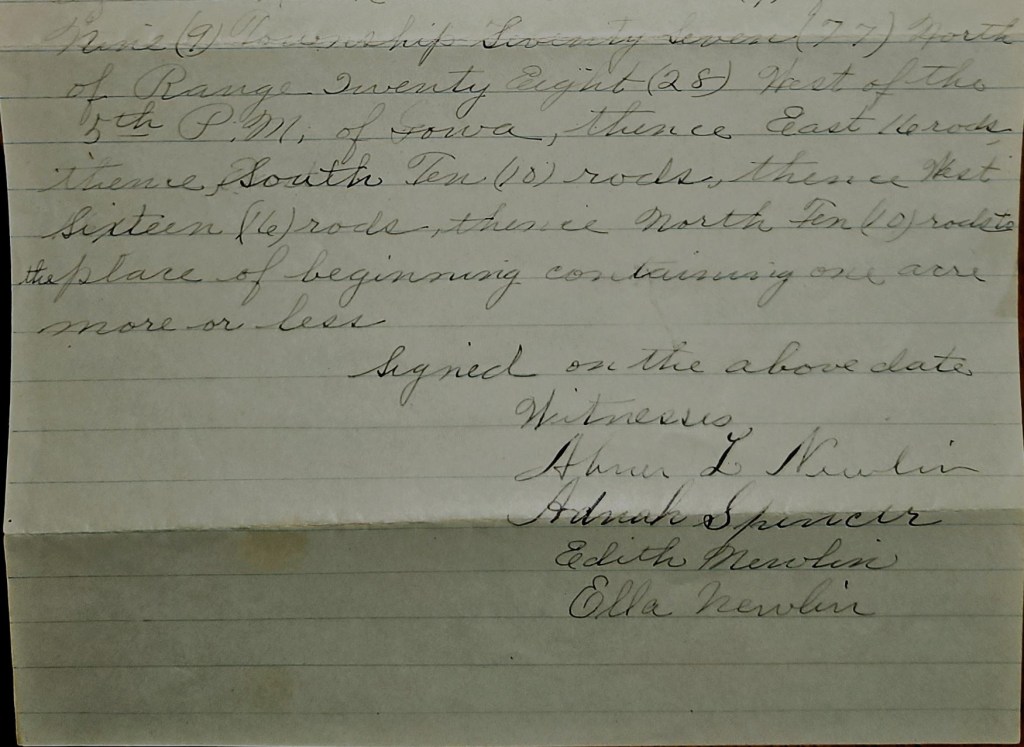 Nine (9) Township Seventy Seven (77) North
of Range Twenty Eight (28) West of the
5th P.M. of Iowa, thence East 16 rods,
thence South Ten (10) rods, thence West
Sixteen (16) rods, thence North Ten (10) rods to
the place of beginning containing one acre
more or less
Signed on the above date
Witnesses
Abner L Newlin
Adnah Spencer
Edith Newlin
Ella Newlin